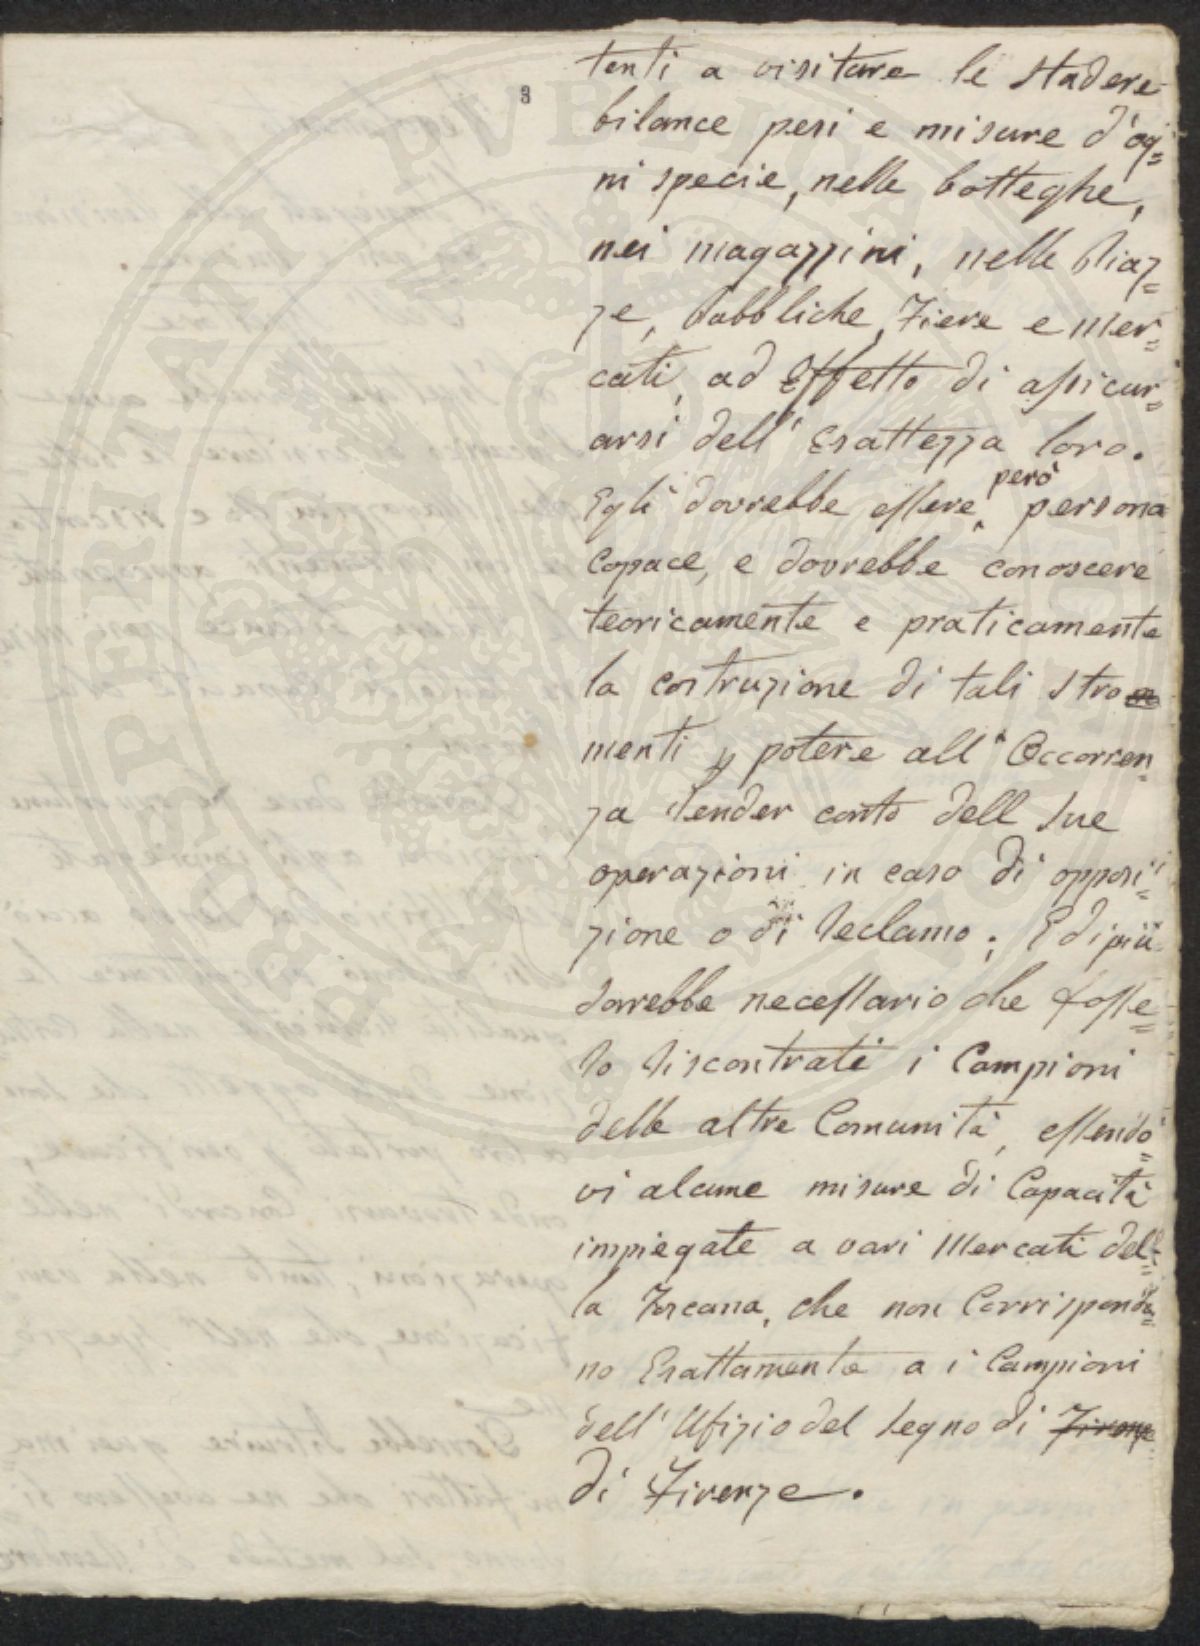 3
tenti a visitare le stadere
bilance pesi e misure d'og=
ni specie, nelle botteghe,
nei magazzini, nelle Piaz=
ze, Pubbliche, Fiere e Mer=
cati, ad Effetto di assicur=
arsi dell' Esattezza loro.
Egli dovrebbe essere però persona
Capace, e dovrebbe conoscere
teoricamente e praticamente
la costruzione di tali stro
menti p potere all' Occorren=
za Render conto dell sue
operazioni in caso di opposi=
zione o di Reclamo; E di più
sarrebbe necessario che fosse=
ro Riscontrati i Campioni
delle altre Comunità, essendo=
vi alcune misure di Capacità
impiegate a vari Mercati del=
la Toscana, che non Corrispondo=
no Esattamente a i Campioni
dell' Ufizio del Segno di Firenze
di Firenze.
PROSPERITATI PVBLICAE